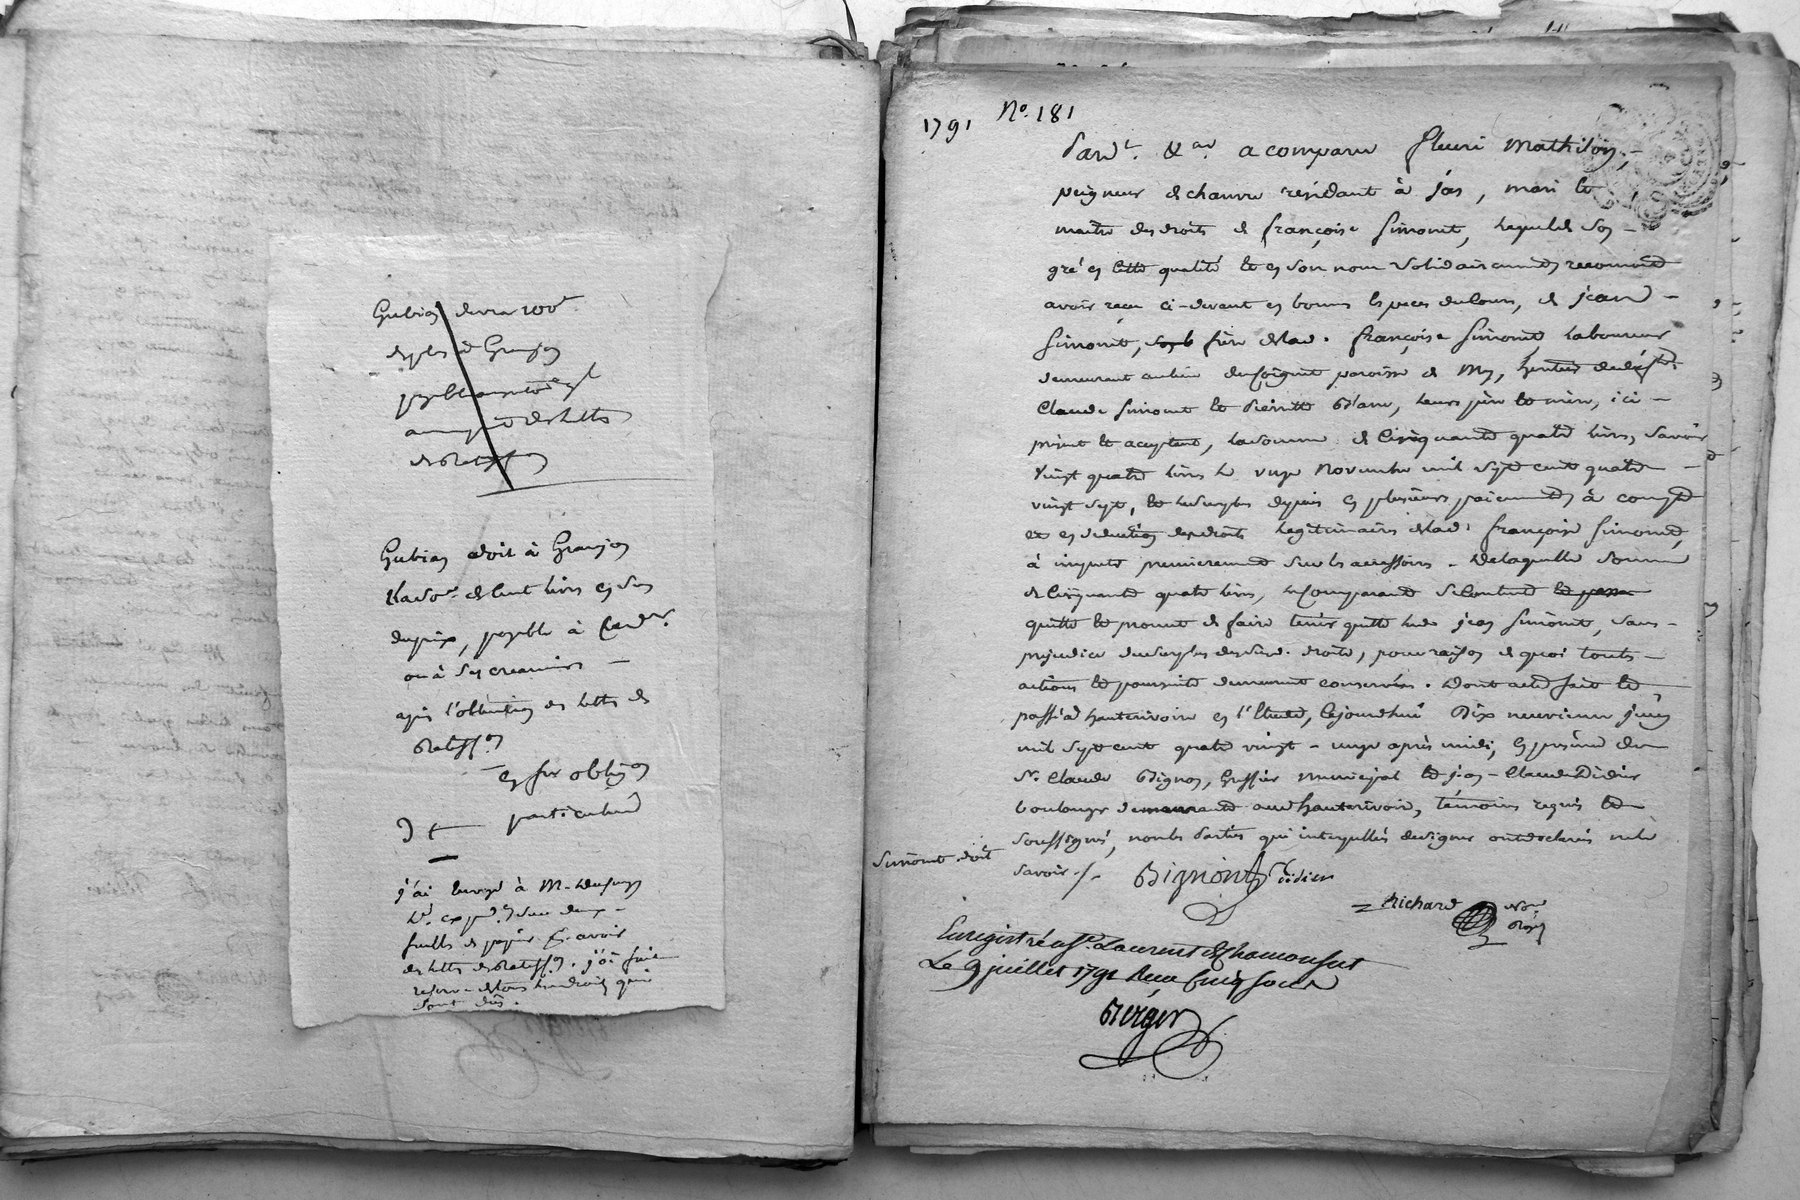 Gubian devra 100#
de plus à Granjon
payable
des lettres
de Ratiff.on
Gubian doit à Granjon
la so.e de cent livres en sus
du prix, payable à
ou à ses creanciers —
après l'obtention des lettres de
Ratiff.on
— en fin obligon
particuliere
j'ai envoyé à M.
deux —
feuilles de papier pr. avoir
des lettres de Ratiff.on. j'ai fait
reserve de tous les droits qui
sont dûs.
1791 No. 181
Pardt. &ar. a comparu fleuri Mathilon,
peigneur de chanvre résidant à jas, mari et
maître des droits de françoise Simonet, lequel de son —
gré en cette qualité et en son nom solidairement reconnoît
avoir reçu ci-devant en bonnes especes de cours, de jean —
Simonet, frère de lad. françoise Simonet, laboureur
demeurant au lieu du paroisse de
Claude Simonet et Pierrette leurs père et mère, ici —
présent et acceptant, la somme de Cinquante quatre livres, savoir
Vingt quatre livres le onze Novembre mil sept cent quatre —
vingt sept, et le surplus depuis en plusieurs paiements à compte
et en déduction des droits légitimaires de lad. françoise Simonet,
à imputer premierement sur les accessoires. De laquelle somme
de Cinquante quatre livres, le Comparant se Contente
quitte et promet de faire tenir quitte led. jean Simonet, sans —
préjudice du surplus desd. droits, pour raison de quoi toutes —
actions et poursuites demeurent conservées. Dont acte fait et
passé à d'hauterivoire en l'Etude, cejourdhui Dix neuvieme juin
mil sept cent quatre vingt — onze après midi, en présence du
Sr. Claude Bignon, Greffier municipal et jean — Claude Didier
boulanger demeurants aud. hauterivoir, témoins requis et
soussignés, non les Parties qui interpellées de signer ont déclaré ne le
savoir ./.
Simonet doit
Bigniont Didier
Richard Nore
Royal
Enregistré a St. Laurent de Chamousset
Le 9 juillet 1791 Reçu Cinq sous
Berger